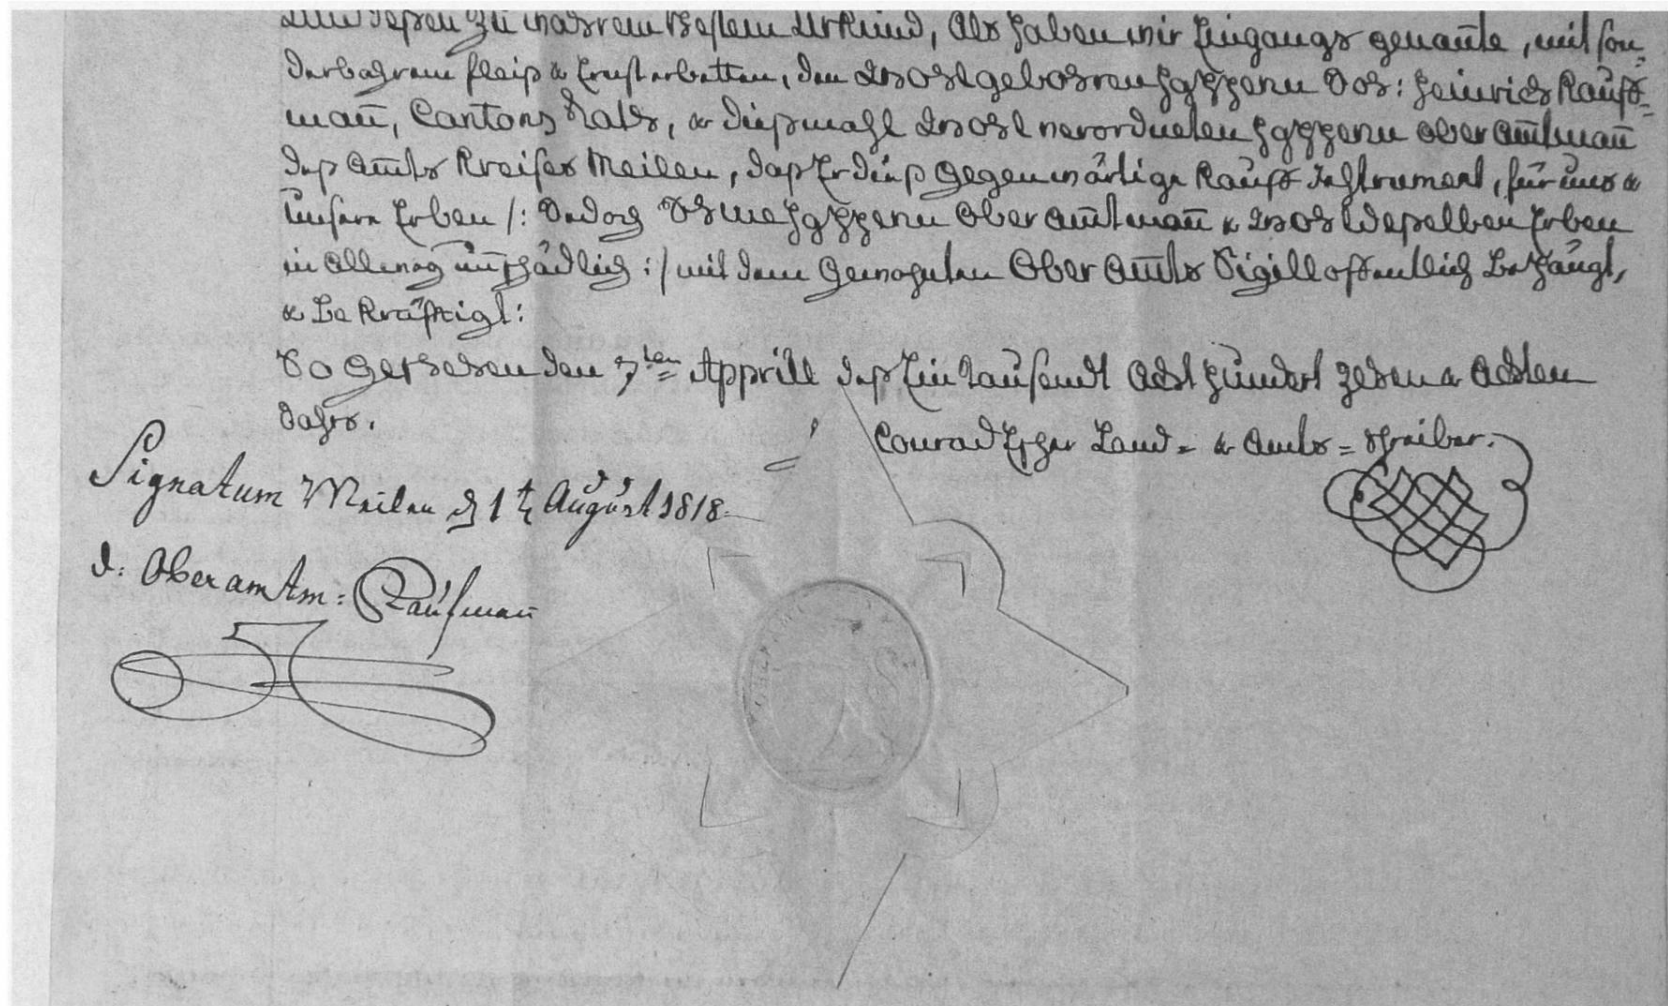 dessen zu wahrem Vestem Urkund, Als haben wir Eingangs genañte, mit son¬
derbahrem fleiß & Ernst erbetten, den Wohlgebohren Hghherrn Joh: Heinrich Kauff¬
mañ, Cantons Raths, & dießmahl Wohlverordneten Hghherrn Ober Amtmañ
deß Amts Kreises Meilen, daß Er dieß Gegenwärtige Kauffs Instrument, für uns &
Unsere Erben /: Jedoch Hghherrn Ober Amtmañ & Wohldeßelben Erben
in Allweg unschädlich :/ mit dem Gewohnten Ober Amts Sigill offentlich behängt,
& bekräftigt:
So Geschehen den 7ten Apprill deß Ein tausendt Acht hundert zehen & Achten
Jahrs.
Conrad Escher Land= & Amts=schreiber.
Signatum Meilen d 1t August 1818.
d: Oberamtm: Kaufmañ